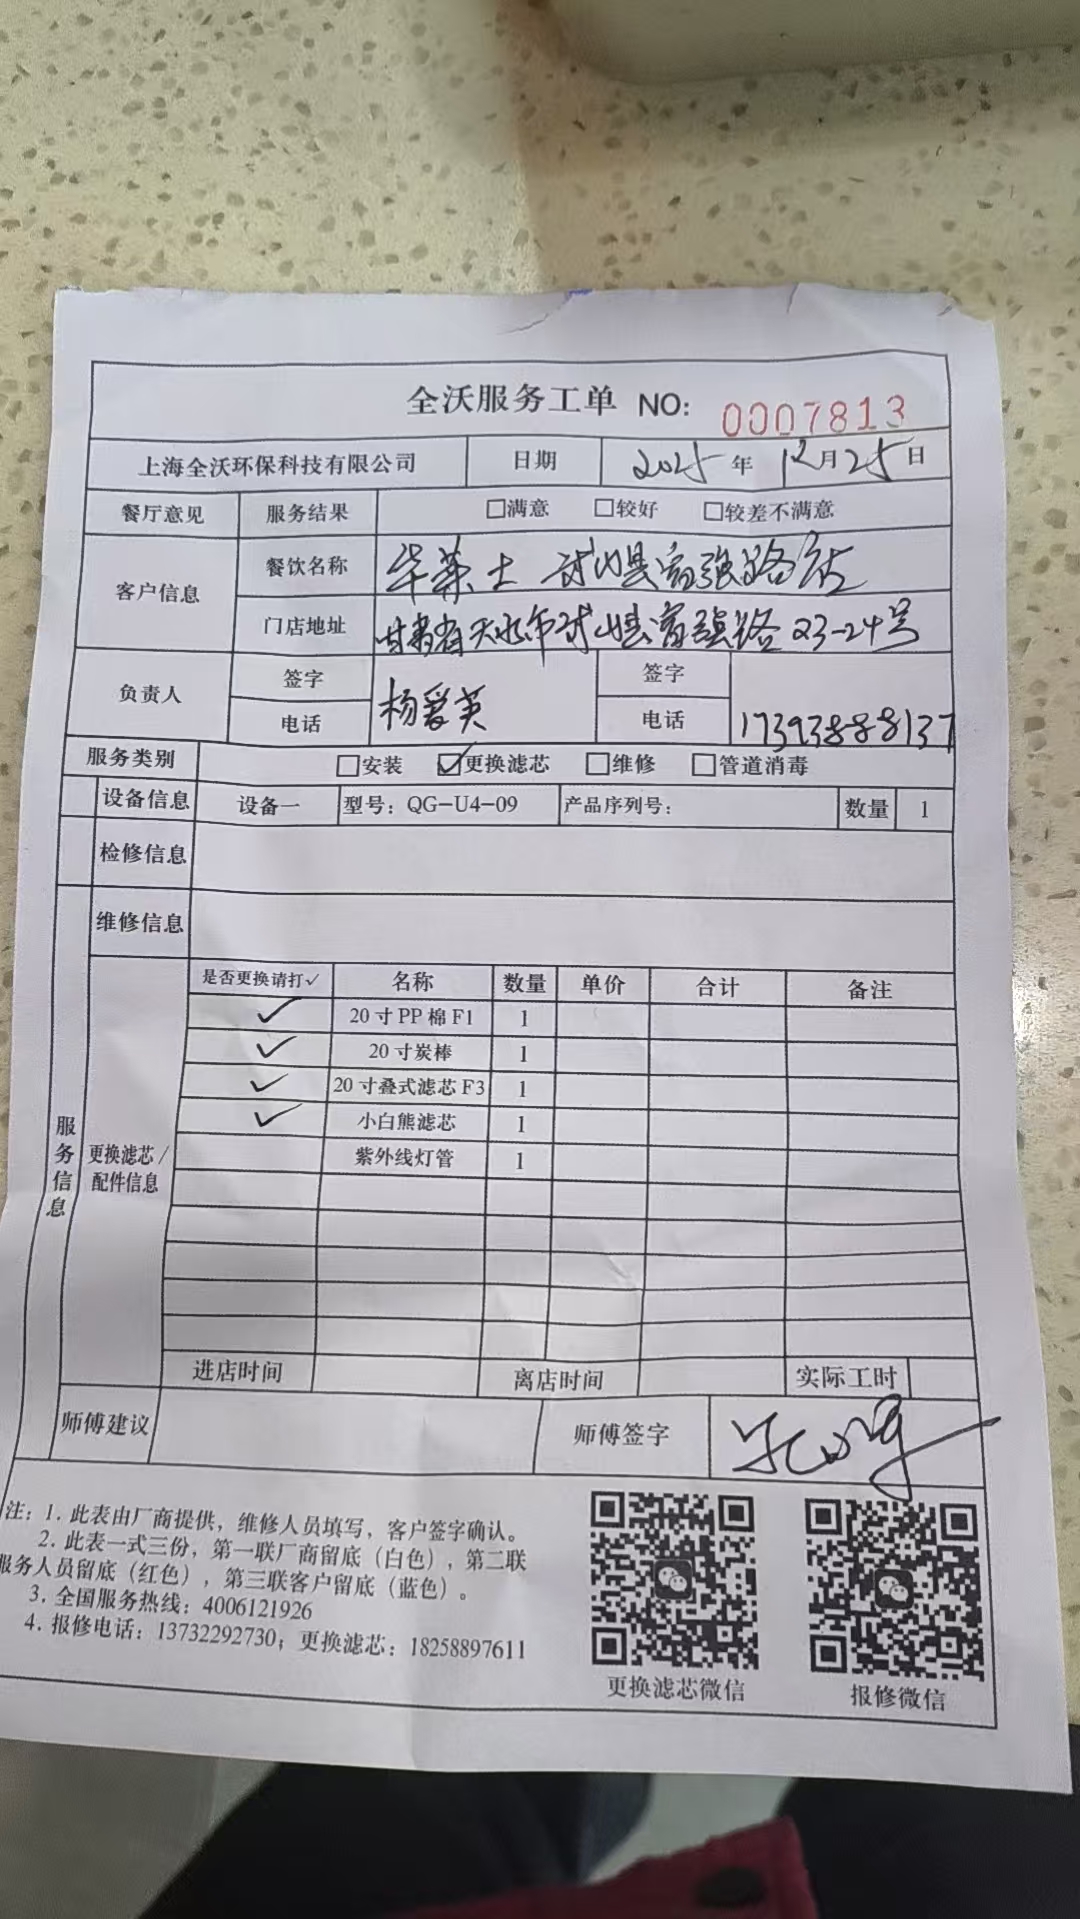 全沃服务工单 NO: 0007813
上海全沃环保科技有限公司 日期 2025年12月25日
餐厅意见 服务结果 □满意 □较好 □较差不满意
客户信息 餐饮名称 华莱士 武山县富强路店
门店地址 甘肃省天水市武山县富强路23-24号
负责人 签字 杨爱英 签字
电话 电话 17393888137
服务类别 □安装 ☑更换滤芯 □维修 □管道消毒
设备信息 设备一 型号：QG-U4-09 产品序列号： 数量 1
检修信息
维修信息
服务信息
更换滤芯/配件信息
是否更换请打✓ 名称 数量 单价 合计 备注
✓ 20寸PP棉F1 1
✓ 20寸炭棒 1
✓ 20寸叠式滤芯F3 1
✓ 小白熊滤芯 1
紫外线灯管 1
进店时间 离店时间 实际工时
师傅建议 师傅签字
注：1. 此表由厂商提供，维修人员填写，客户签字确认。
2. 此表一式三份，第一联厂商留底（白色），第二联
服务人员留底（红色），第三联客户留底（蓝色）。
3. 全国服务热线：4006121926
4. 报修电话：13732292730；更换滤芯：18258897611
更换滤芯微信 报修微信